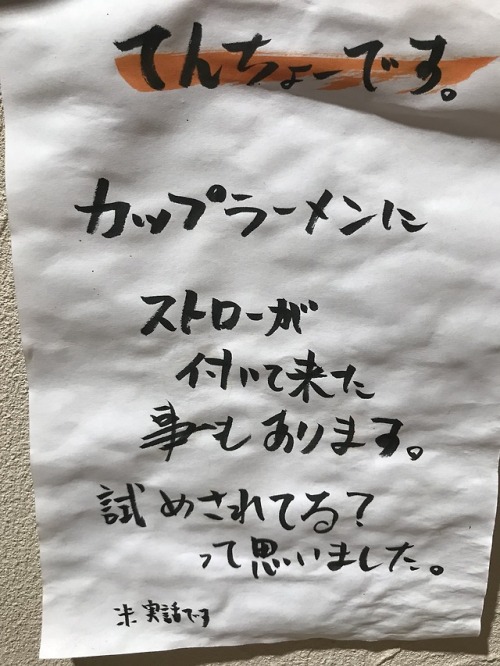 てんちょーです。
カップラーメンに
ストローが
付いて来た
事もあります。
試めされてる?
って思いました。
※実話です